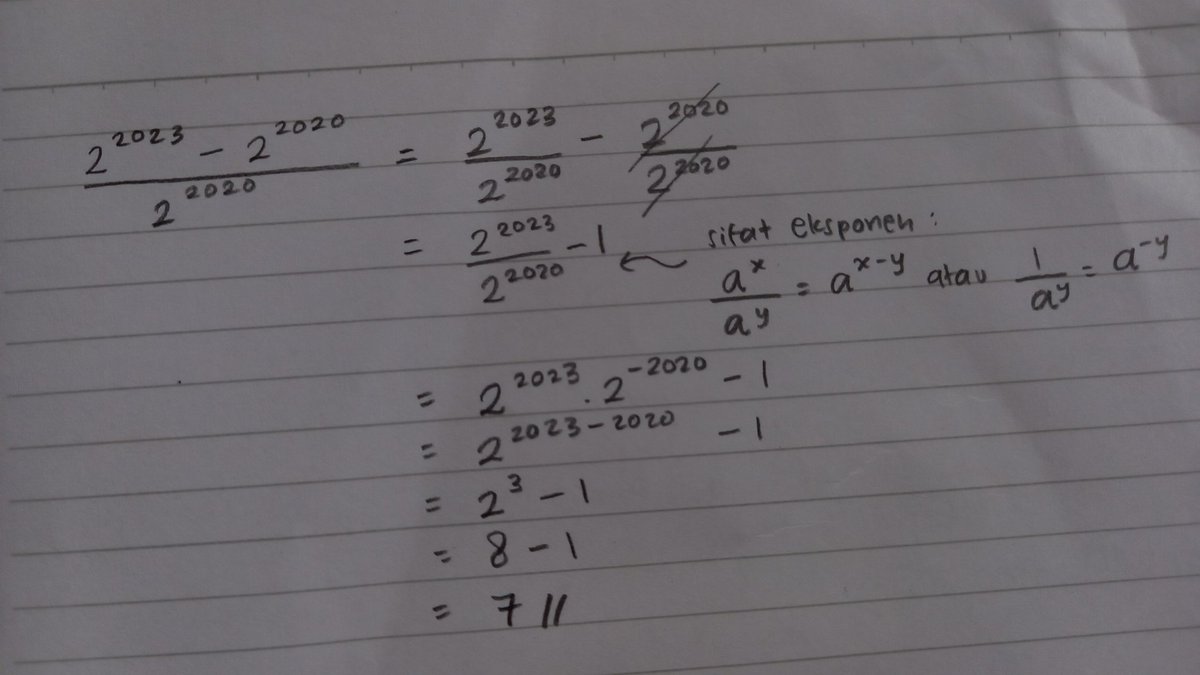 (2^2023 - 2^2020) / 2^2020 = 2^2023 / 2^2020 - 2^2020 / 2^2020
= 2^2023 / 2^2020 - 1
sifat eksponen :
a^x / a^y = a^(x-y) atau 1 / a^y = a^-y
= 2^2023 . 2^-2020 - 1
= 2^(2023-2020) - 1
= 2^3 - 1
= 8 - 1
= 7 //